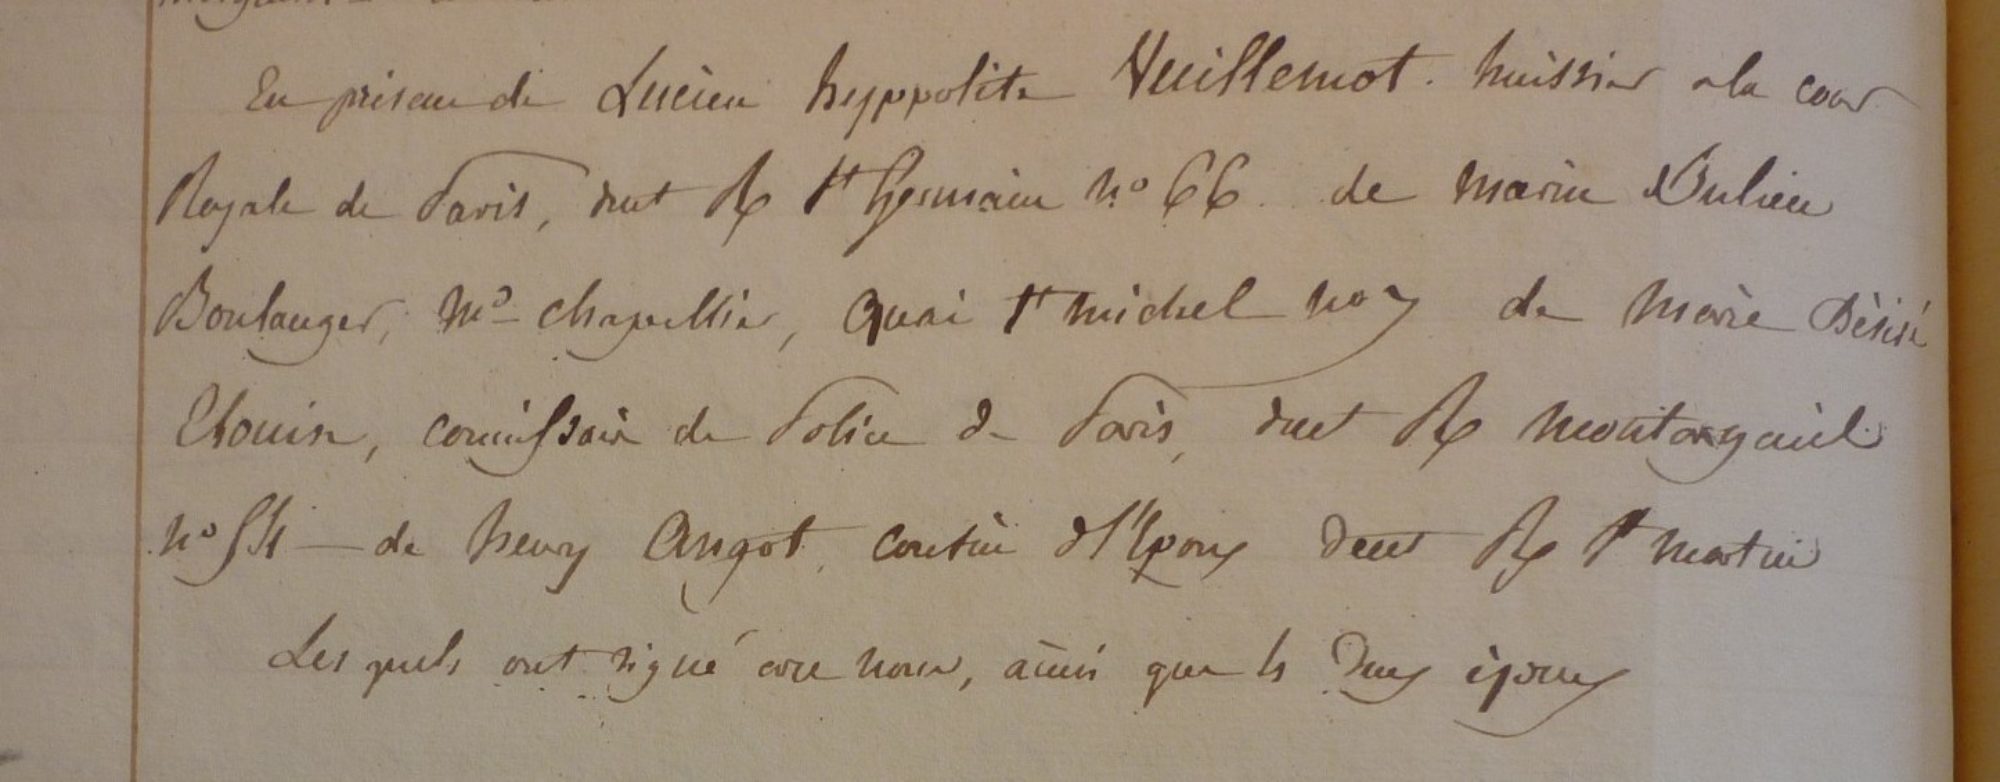 En présence de Lucien hyppolite Vuillemot. huissier a la cour
Royale de Paris, dmt R St Germain no 66 de marin Julien
Boulanger, md chapellier, quai St michel no 7 de marie Désiré
Elouin, comissaire de Police de Paris, dmt R montorgueil
no 51 de henry Angot, cousin de l'Epoux dmt R St martin
Les quels ont signé avec nous, ainsi que les deux époux